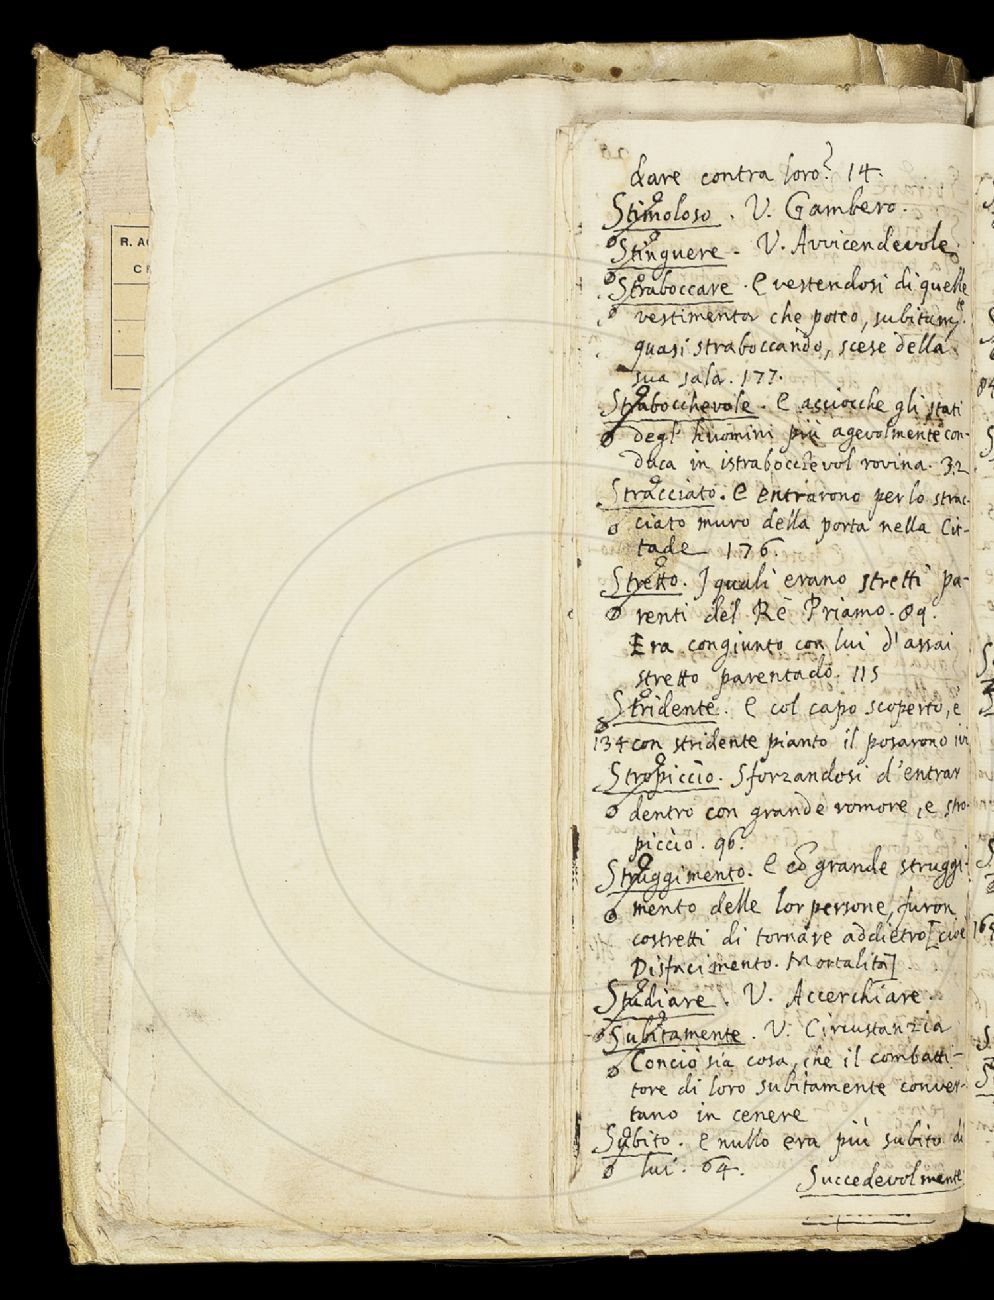 R. AC
dare contra loro? 14.
Stimoloso. V. Gambero.
Stinguere. V. Avvicendevole.
Straboccare. E vestendosi di quelle
vestimenta che poteo, subitam.te
quasi straboccando, scese della
sua sala. 177.
Strabocchevole. E acciocche gli stati
degl' huomini più agevolmente con-
duca in istrabocchevol rovina. 32
Stracciato. E entrarono per lo strac-
ciato muro della porta nella Cit-
tade 176.
Stretto. I quali erano stretti pa-
renti del Rè Priamo. 89.
Era congiunto con lui d'assai
stretto parentado. 115
Stridente. E col capo scoperto, e
134 con stridente pianto il posarono ivi
Stropiccìo. Sforzandosi d'entrar
dentro con grande romore, e stro-
piccìo. 96.
Struggimento. E cō grande struggi-
mento delle lor persone, furon
costretti di tornare addietro [cioè
Disfacimento. Mortalità].
Studiare. V. Accerchiare.
Subitamente. V. Circustanzia
Conciò sia cosa, che il combatti-
tore di loro subitamente conver-
tano in cenere
Subito. E nullo era più subito di
lui. 64.
Succedevolmente